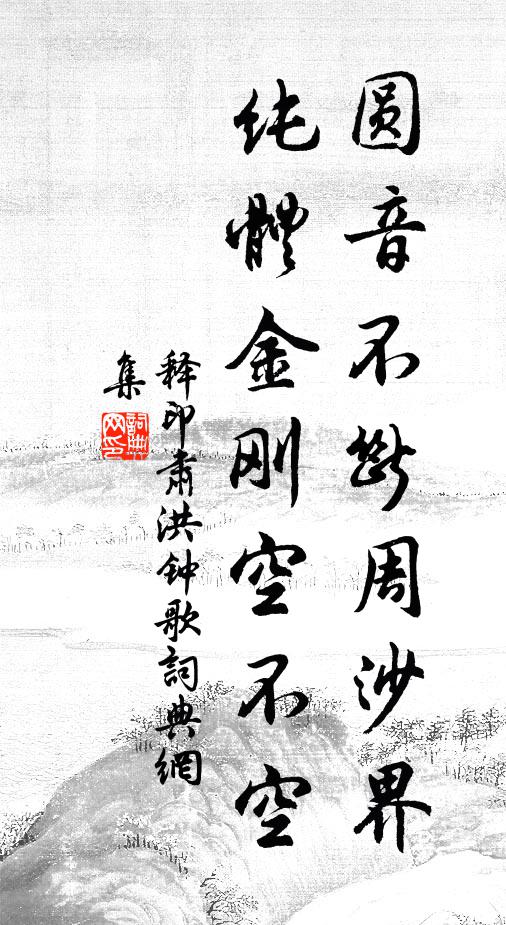 圆音不斷周沙界
纯體金刚空不空
释印肃洪钟歌詞典網
集
詞典网印